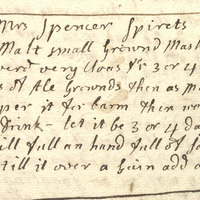 Mrs Spencer Spirets
Malt small Grownd Mash
very Cloas 3 or 4
of Ale Grownds then as m
it for barm then
drink - let it be 3 or 4 da
ill full an hand full of
till it over a add